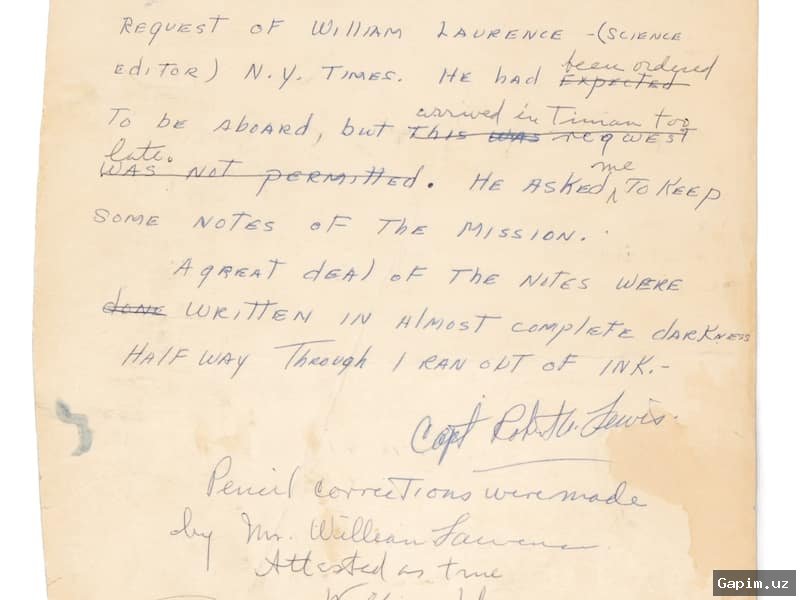 REQUEST OF WILLIAM LAURENCE - (SCIENCE
EDITOR) N.Y. TIMES. HE HAD EXPECTED been ordered
TO BE ABOARD, but THIS WAS REQUEST arrived in Tinian too
late.
WAS NOT PERMITTED. HE ASKED me TO KEEP
SOME NOTES OF THE MISSION.
A GREAT DEAL OF THE NOTES WERE
DONE WRITTEN IN ALMOST COMPLETE DARKNESS
HALF WAY THROUGH I RAN OUT OF INK.-
Capt Robert A. Lewis.
Pencil corrections were made
by Mr. William Laurence.
Attested as true
Gapim.uz